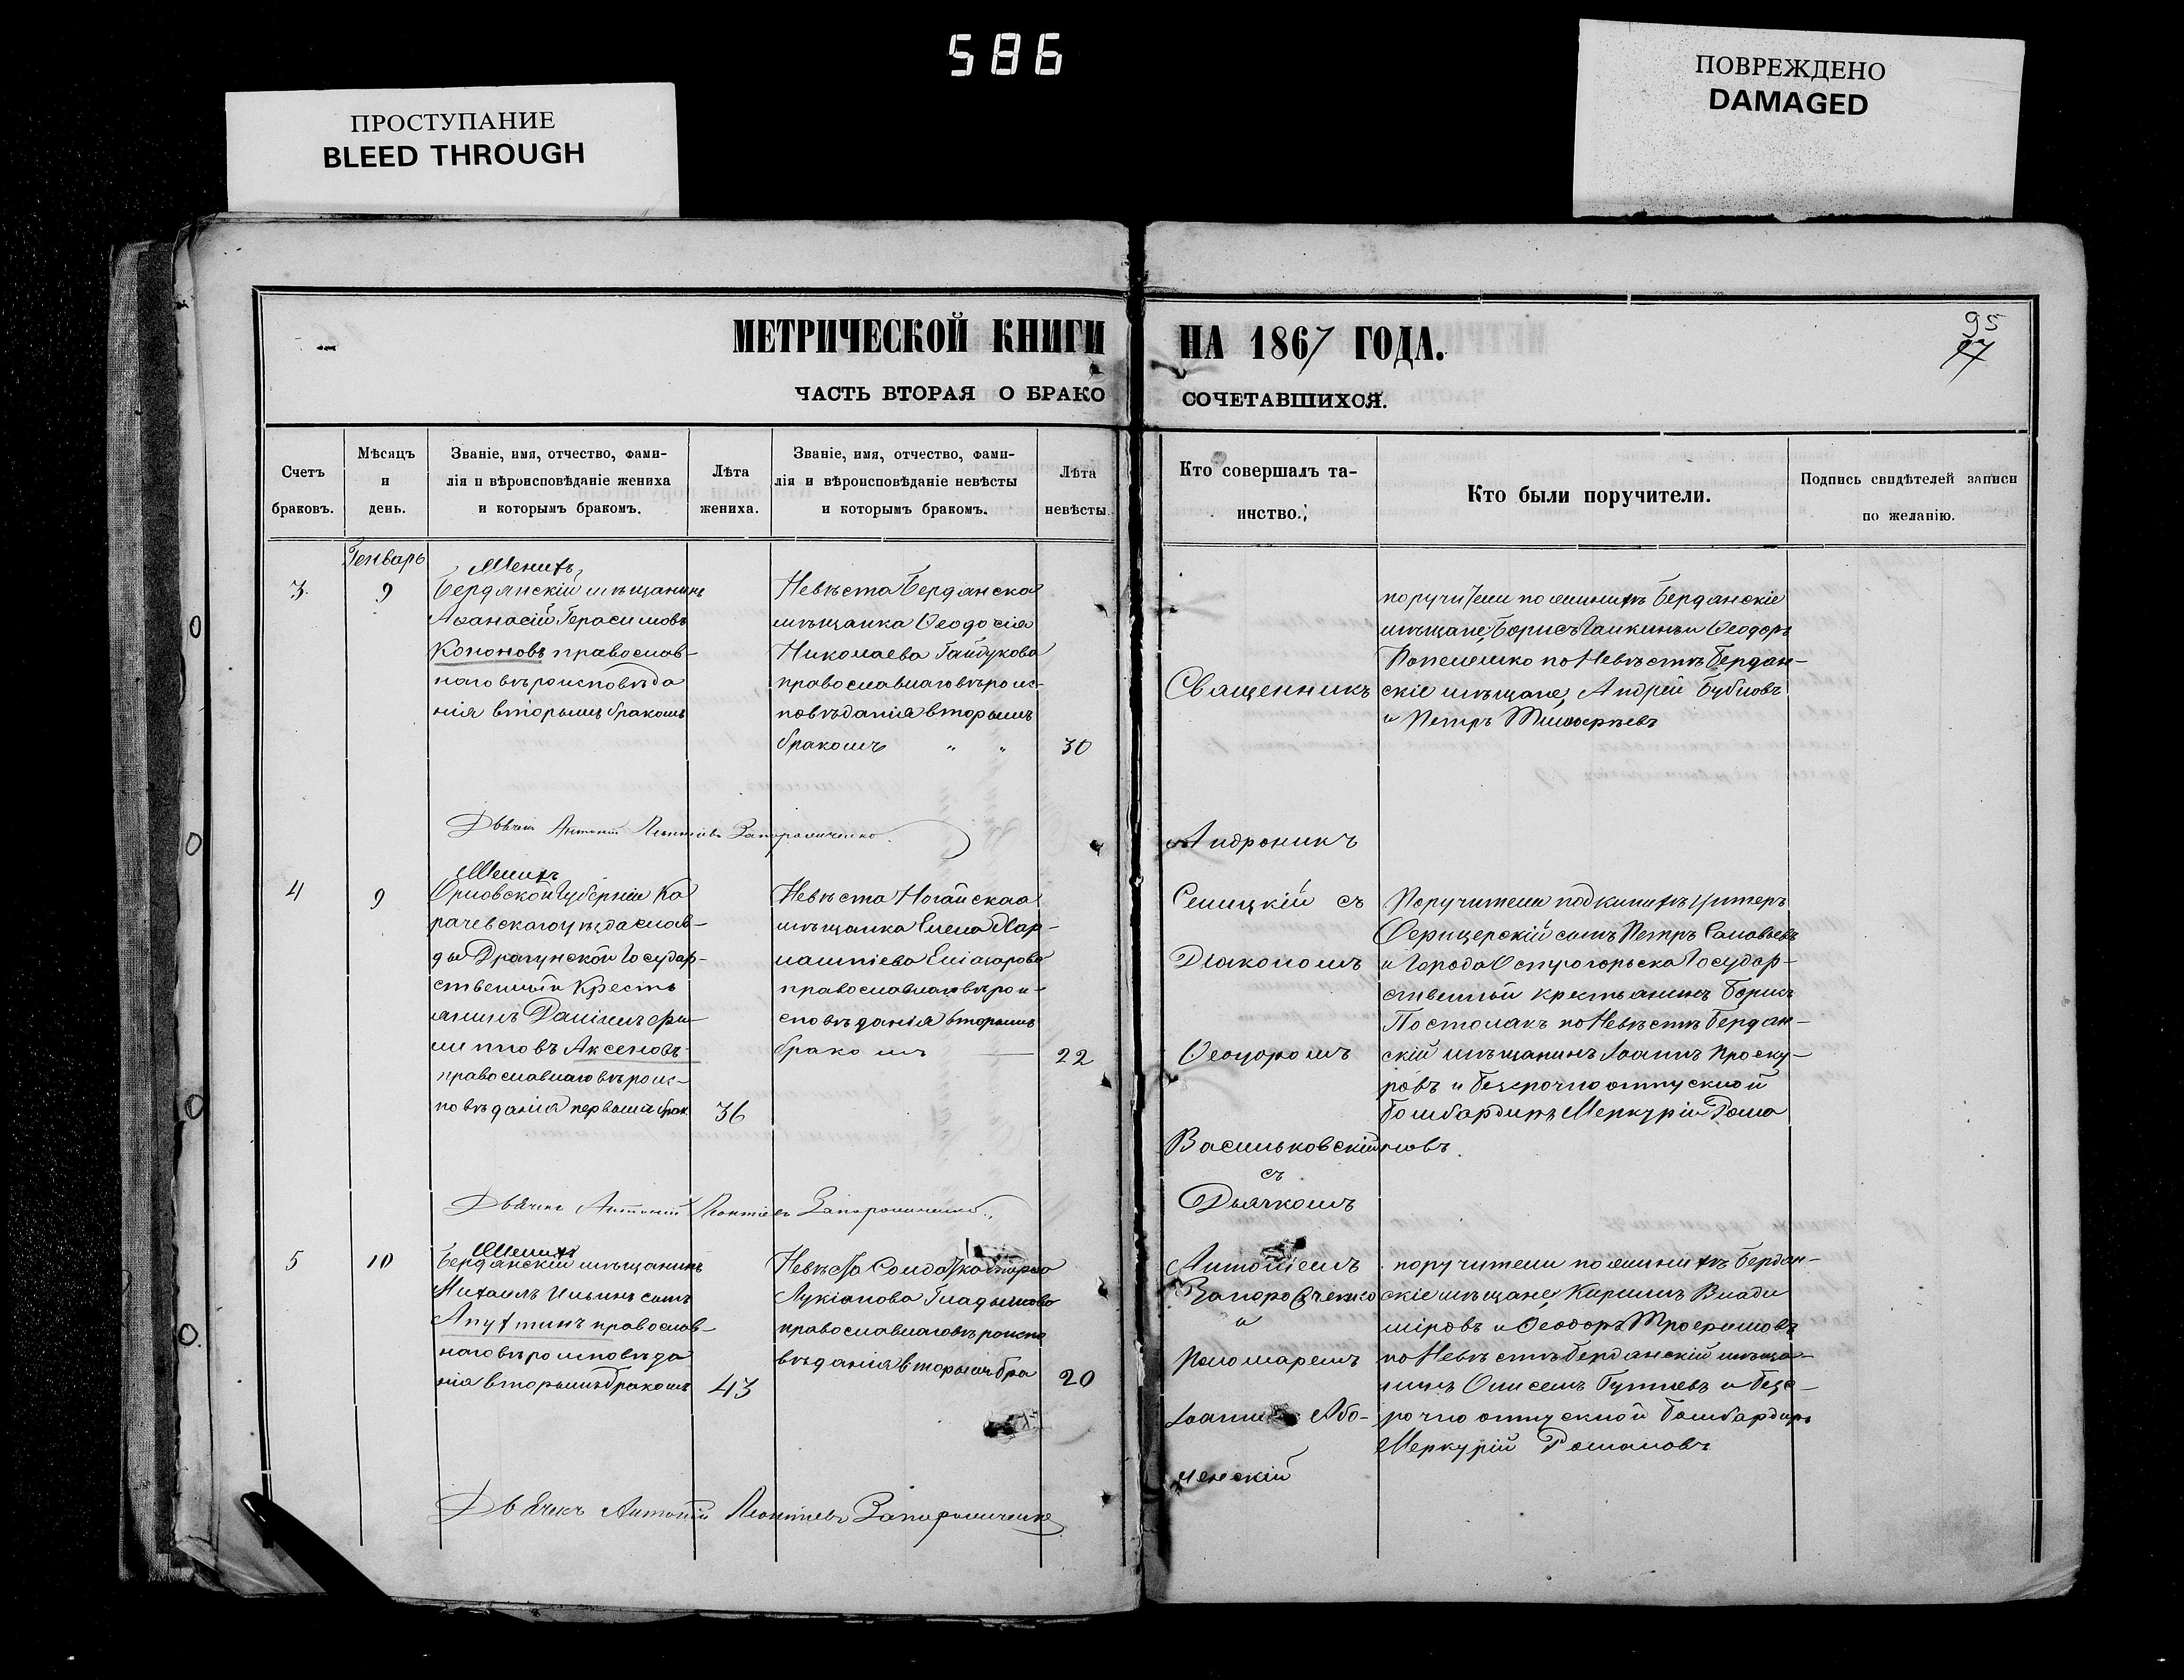 586
ПРОСТУПАНИЕ
BLEED THROUGH
ПОВРЕЖДЕНО
DAMAGED
МЕТРИЧЕСКОЙ КНИГИ НА 1867 ГОДА.
95
97
ЧАСТЬ ВТОРАЯ О БРАКОСОЧЕТАВШИХСЯ.
Счетъ браковъ.
Мѣсяцъ и день.
Званіе, имя, отчество, фами-
лія и вѣроисповѣданіе жениха
и которымъ бракомъ.
Лѣта жениха.
Званіе, имя, отчество, фами-
лія и вѣроисповѣданіе невѣсты
и которымъ бракомъ.
Лѣта невѣсты.
Кто совершалъ та-
инство.
Кто были поручители.
Подпись свидѣтелей записи
по желанію.
Генварь
3
9
Женихъ
Бердянскій мѣщанинъ
Аѳанасій Герасимовъ
Кононовъ православ-
наго вѣроисповѣда
нія вторымъ бракомъ
Невѣста Бердянская
мѣщанка Ѳеодосія
Николаева Гайдукова
православнаго вѣроис-
повѣданія вторымъ
бракомъ " "
30
поручители по женихѣ Бердянскіе
мѣщане, Борисъ и Ѳеодоръ
по Невѣстѣ Бердян-
скіе мѣщане, Андрей Бубновъ
и Петръ
Дьячекъ Антоній Леонтіевъ Запорожченко
4
9
Женихъ
Орловской Губерніи Ка
рачевскаго уѣзда слав-
ды Драгунской Государ-
ственный Кресть
янинъ Даніилъ Фи-
липповъ Аксеновъ
православнаго вѣроис-
повѣданія первымъ брак
36
Невѣста Ногайская
мѣщанка Елена
православнаго вѣрои-
споведанія вторымъ
бракомъ
22
Поручители по женихѣ Унтеръ
Офицерскій сынъ Петръ Соловьевъ
и Города Острогорьска Государ-
ственный крестьянинъ Борисъ
Постолакъ по Невѣстѣ Бердян-
скій мѣщанинъ Іоаннъ Проску-
ровъ и безсрочно отпускной
бомбардиръ Меркурій Рома
новъ.
Дьячекъ Антоній Леонтіевъ Запорожченко
5
10
Женихъ
Бердянскій мѣщанинъ
Михаилъ Ильинъ сынъ
Апухтинъ православ-
наго вѣроисповѣда
нія вторымъ бракомъ
43
Невѣста Солдатка Марѳа
Лукіанова Гладышова
православнаго вѣроиспо
вѣданія вторымъ бра
20
поручители по женихѣ Бердян-
скіе мѣщане, Кириллъ Влади
міровъ и Ѳеодоръ Трофимовъ
по Невѣстѣ Бердянскій мѣща-
нинъ и безс-
рочно отпускной бомбардиръ
Меркурій Романовъ
Дьячекъ Антоній Леонтіевъ Запорожченко
Священникъ
Андроникъ
Сеницкій съ
Діакономъ
Ѳеодоромъ
Васильковскій
съ
Дьячкомъ
Антоніемъ
Запорожченко
и
Пономаремъ